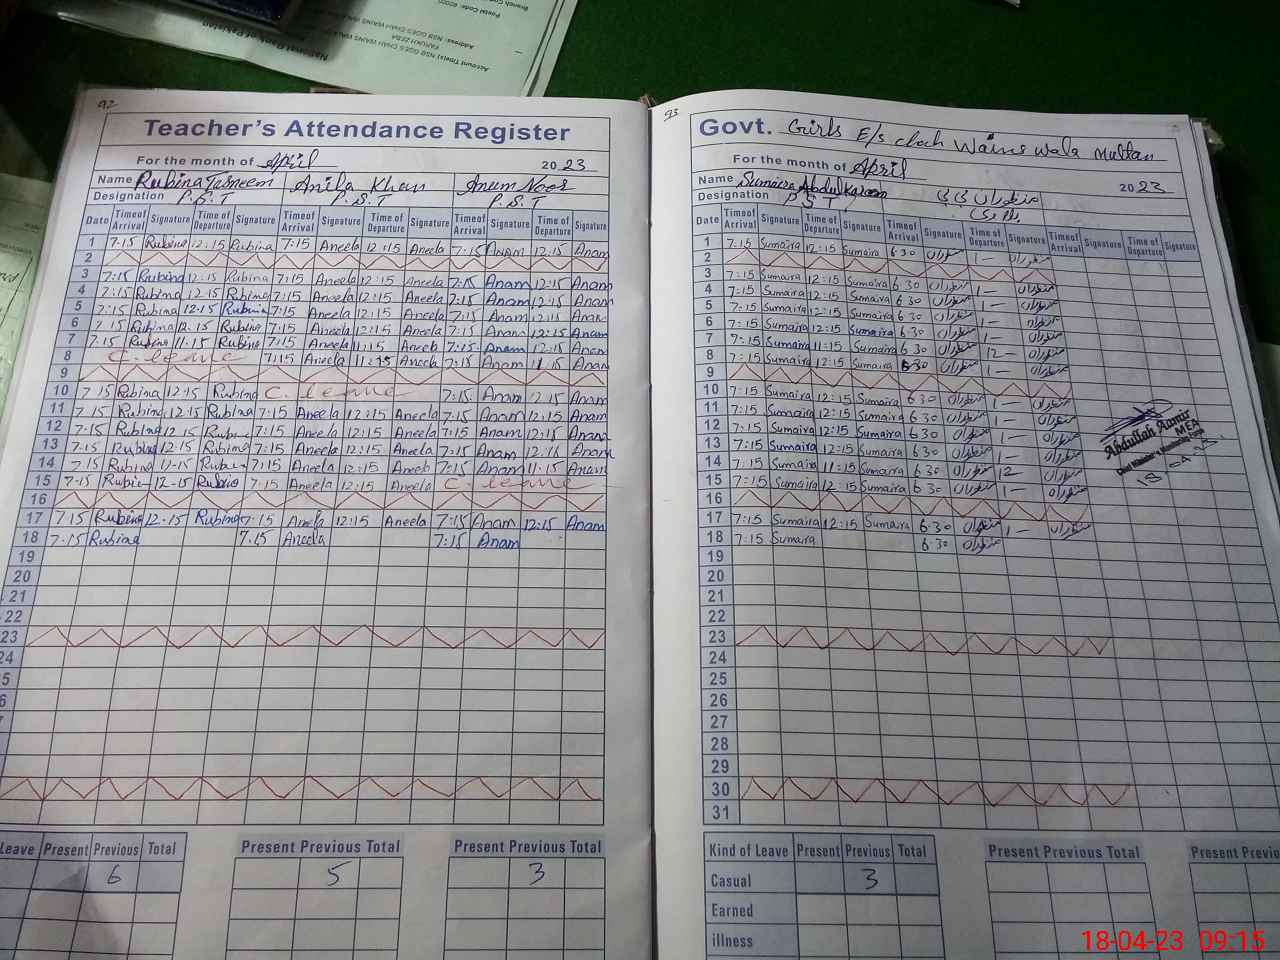 National Bank of Pakistan
92
Teacher's Attendance Register
For the month of April 2023
Name Rubina Tasneem Anila Khan Anum Noor
Designation P.S.T P.S.T P.S.T
Date Time of Arrival Signature Time of Departure Signature Time of Arrival Signature Time of Departure Signature Time of Arrival Signature Time of Departure Signature
1 7:15 Rubina 12:15 Rubina 7:15 Aneela 12:15 Aneela 7:15 Anam 12:15 Anam
2
3 7:15 Rubina 12:15 Rubina 7:15 Aneela 12:15 Aneela 7:15 Anam 12:15 Anam
4 7:15 Rubina 12:15 Rubina 7:15 Aneela 12:15 Aneela 7:15 Anam 12:15 Anam
5 7:15 Rubina 12:15 Rubina 7:15 Aneela 12:15 Aneela 7:15 Anam 12:15 Anam
6 7:15 Rubina 12:15 Rubina 7:15 Aneela 12:15 Aneela 7:15 Anam 12:15 Anam
7 7:15 Rubina 11:15 Rubina 7:15 Aneela 11:15 Aneela 7:15 Anam 12:15 Anam
8 C. leave 7:15 Aneela 11:15 Aneela 7:15 Anam 11:15 Anam
9
10 7:15 Rubina 12:15 Rubina C. leave 7:15 Anam 12:15 Anam
11 7:15 Rubina 12:15 Rubina 7:15 Aneela 12:15 Aneela 7:15 Anam 12:15 Anam
12 7:15 Rubina 12:15 Rubina 7:15 Aneela 12:15 Aneela 7:15 Anam 12:15 Anam
13 7:15 Rubina 12:15 Rubina 7:15 Aneela 12:15 Aneela 7:15 Anam 12:15 Anam
14 7:15 Rubina 11:15 Rubina 7:15 Aneela 12:15 Aneela 7:15 Anam 11:15 Anam
15 7:15 Rubina 12:15 Rubina 7:15 Aneela 12:15 Aneela C. leave
16
17 7:15 Rubina 12:15 Rubina 7:15 Aneela 12:15 Aneela 7:15 Anam 12:15 Anam
18 7:15 Rubina 7:15 Aneela 7:15 Anam
19
20
21
22
23
24
25
26
27
28
29
30
Leave Present Previous Total Present Previous Total Present Previous Total
6 5 3
93
Govt. Girls E/s chah Wains Wala Multan
For the month of April 2023
Name Sumaira Abdul Kareem
Designation P.S.T
Date Time of Arrival Signature Time of Departure Signature Time of Arrival Signature Time of Departure Signature Time of Arrival Signature Time of Departure Signature
1 7:15 Sumaira 12:15 Sumaira 6 30 منظوراں 1— منظوراں
2
3 7:15 Sumaira 12:15 Sumaira 6 30 منظوراں 1— منظوراں
4 7:15 Sumaira 12:15 Sumaira 6 30 منظوراں 1— منظوراں
5 7:15 Sumaira 12:15 Sumaira 6 30 منظوراں 1— منظوراں
6 7:15 Sumaira 12:15 Sumaira 6 30 منظوراں 1— منظوراں
7 7:15 Sumaira 11:15 Sumaira 6 30 منظوراں 12— منظوراں
8 7:15 Sumaira 12:15 Sumaira 6 30 منظوراں 1— منظوراں
9
10 7:15 Sumaira 12:15 Sumaira 6 30 منظوراں 1— منظوراں
11 7:15 Sumaira 12:15 Sumaira 6 30 منظوراں 1— منظوراں
12 7:15 Sumaira 12:15 Sumaira 6 30 منظوراں 1— منظوراں
13 7:15 Sumaira 12:15 Sumaira 6 30 منظوراں 1— منظوراں
14 7:15 Sumaira 11:15 Sumaira 6 30 منظوراں 12 منظوراں
15 7:15 Sumaira 12:15 Sumaira 6 30 منظوراں 1— منظوراں
16
17 7:15 Sumaira 12:15 Sumaira 6:30 منظوراں 1— منظوراں
18 7:15 Sumaira 6 30 منظوراں
19
20
21
22
23
24
25
26
27
28
29
30
31
Abdullah Aamir
MEA
Kind of Leave Present Previous Total Present Previous Total Present
Casual 3
Earned
illness
18-04-23 09:15